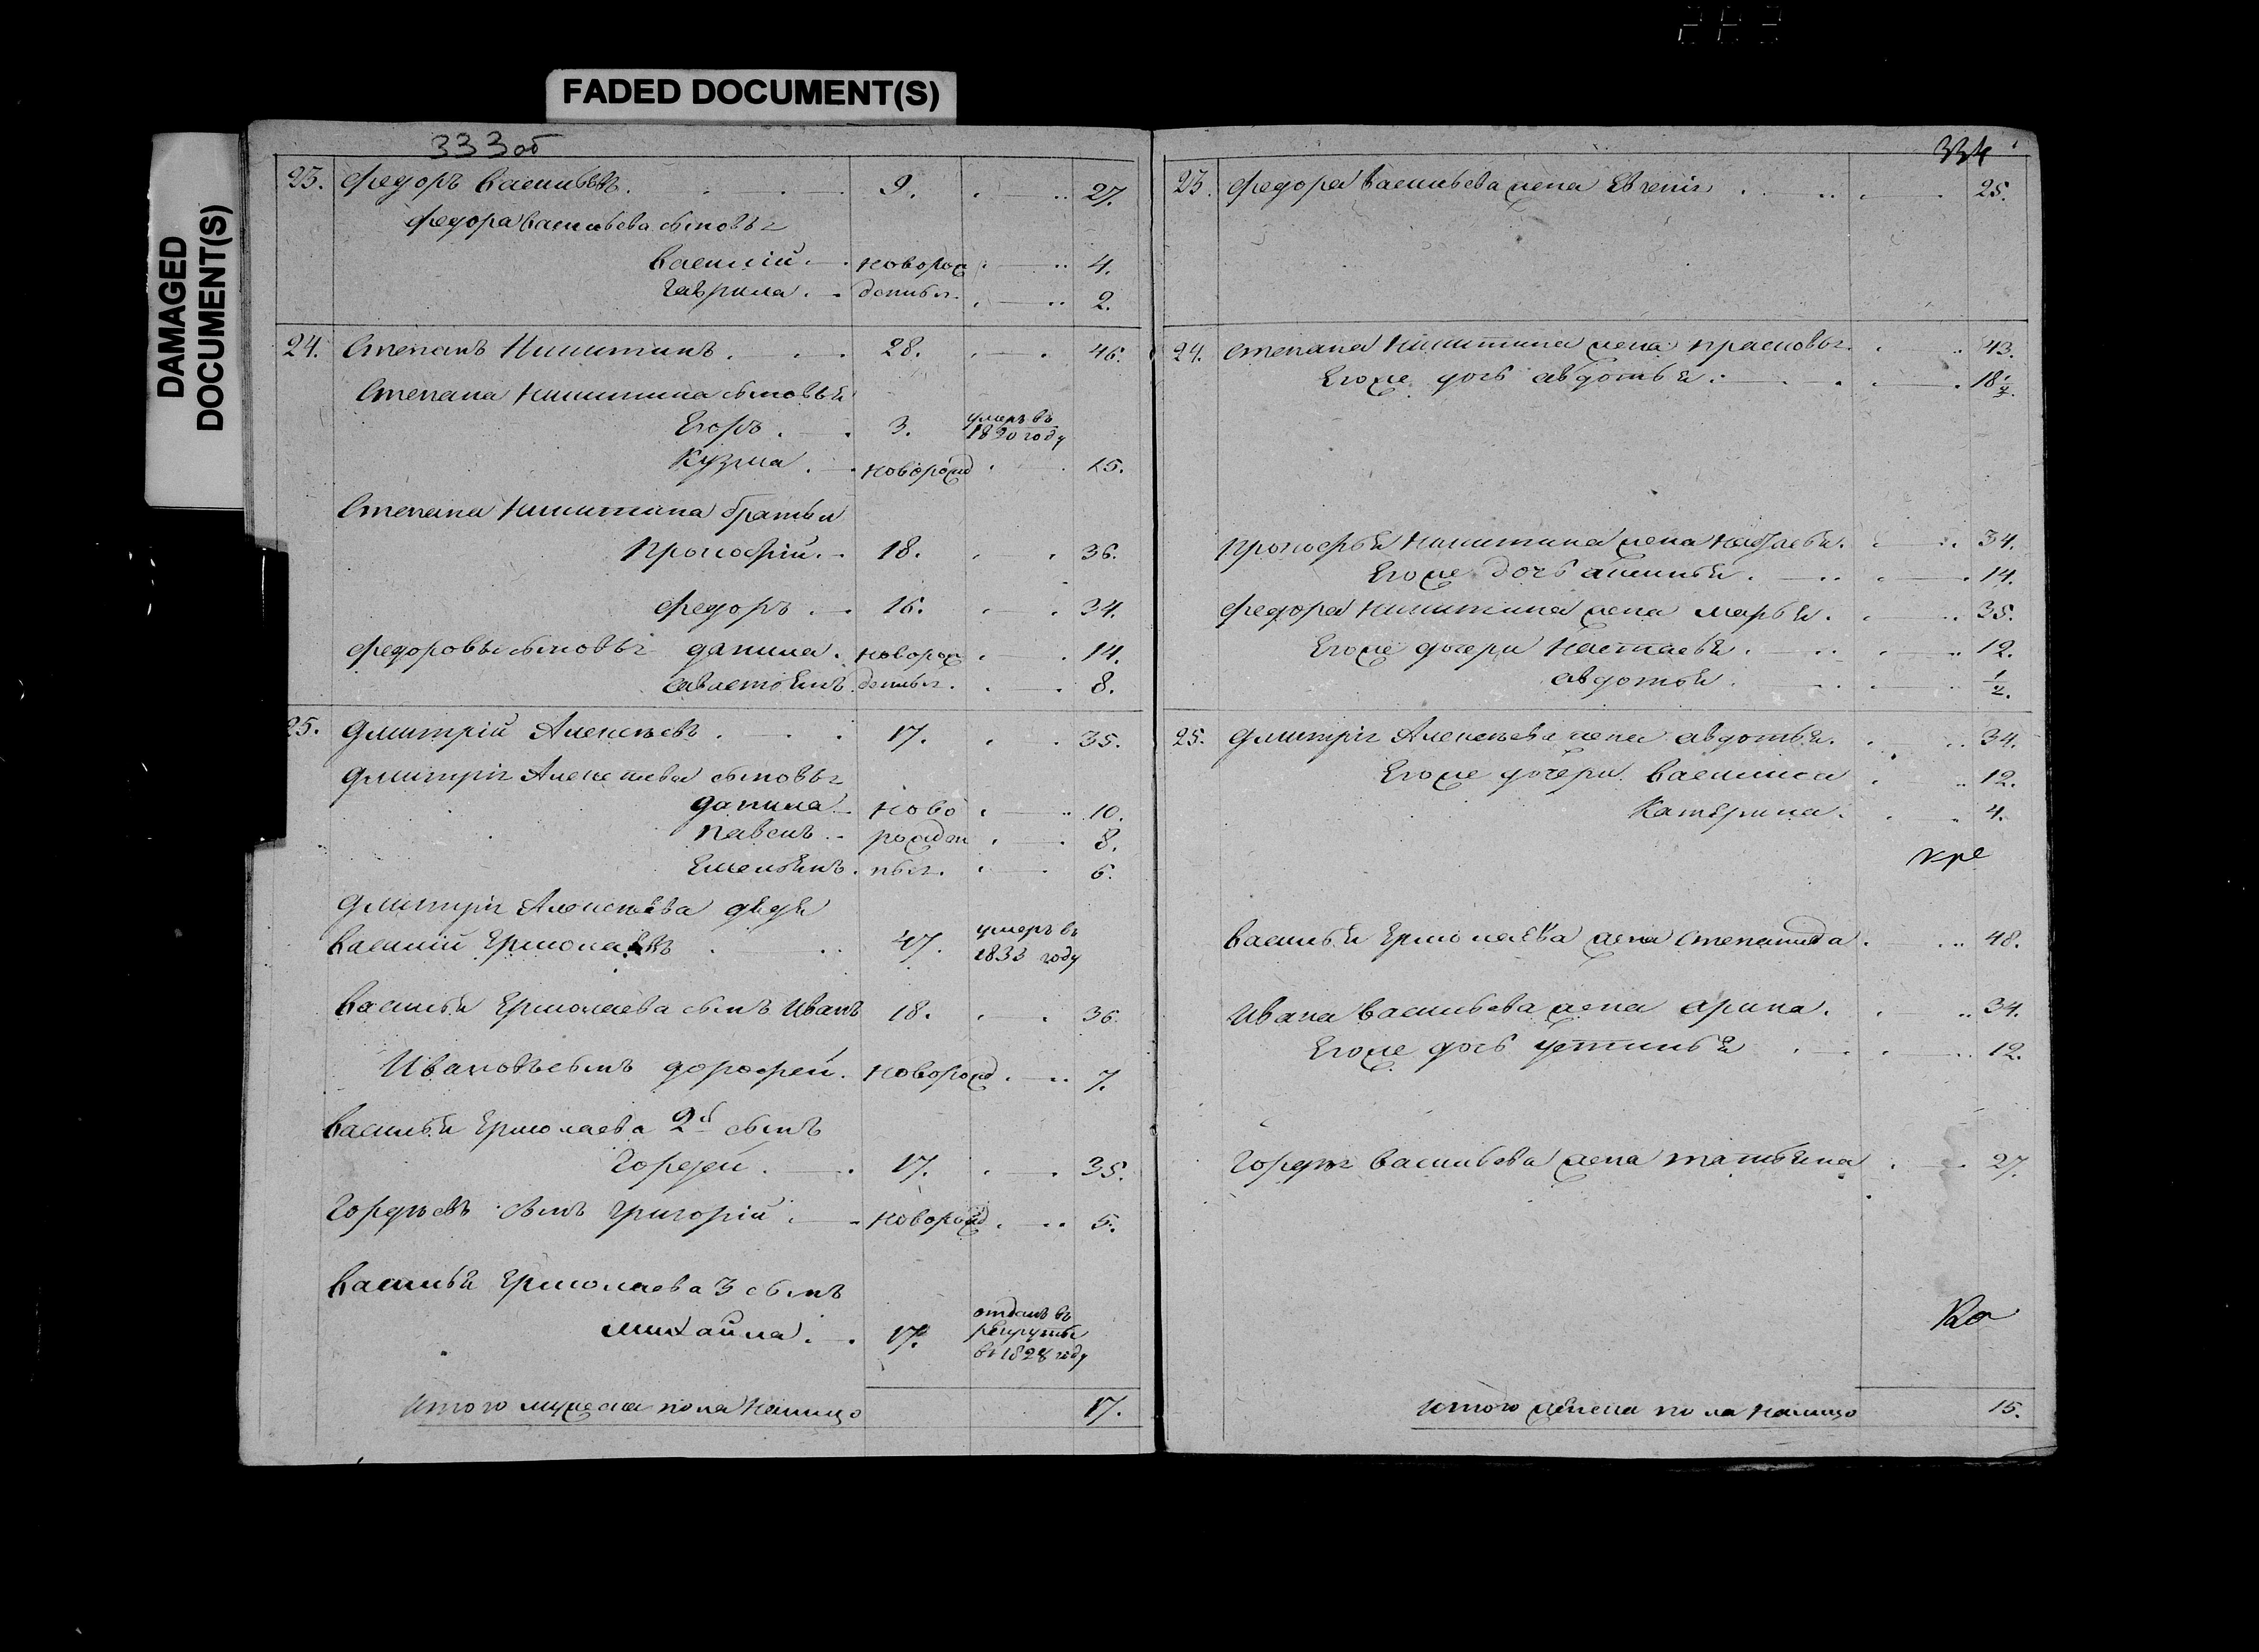 FADED DOCUMENT(S)
DAMAGED
DOCUMENT(S)
333об
23. Федоръ Васильевъ. 9. 27.
Федора Васильева сыновья
Василій. новорож 4.
Гаврила. денныя. 2.
24. Степанъ Никитинъ. 28. 46.
Степана Никитина сыновья
Егоръ. 3. умеръ въ 1830 году
Кузма. новорожд 15.
Степана Никитина братья
Прокофій. 18. 36.
Федоръ. 16. 34.
Федоровы сыновья Данила. новорож 14.
Савастьянъ. денныя. 8.
25. Дмитрій Алексѣевъ. 17. 35.
Дмитрія Алексѣева сыновья
Данила ново 10.
Павелъ. рожден 8.
Емельянъ. ныя. 6.
Дмитрія Алексѣева дядя
Василій Ермолаевъ 47. умеръ въ 1833 году
Василья Ермолаева сынъ Иванъ 18. 36.
Ивановъ сынъ Дорофей. новорожд. 7.
Василья Ермолаева 2й сынъ
Гордей. 17. 35.
Гордѣевъ сынъ Григорій. новорожд. 5.
Василья Ермолаева 3 сынъ
Михайла. 17. отданъ въ рекруты въ 1828 году
Итого мужеска пола налицо 17.
334
23. Федора Васильева жена Евгенія 25.
24. Степана Никитина жена Прасковья. 43.
Егоже дочь Авдотья. 18 1/2.
Прокофья Никитина жена Настасья. 34.
Егоже дочь Аксинья. 14.
Федора Никитина жена Марья. 35.
Егоже дочери Настасья. 12.
Авдотья. 1/2.
25. Дмитрія Алексѣева жена Авдотья. 34.
Егоже дочери Василиса 12.
Катерина. 4.
кре
Василья Ермолаева жена Степанида. 48.
Ивана Васильева жена Арина. 34.
Егоже дочь Устинья 12.
Гордея Васильева жена Татьяна 27.
Итого женска пола налицо 15.